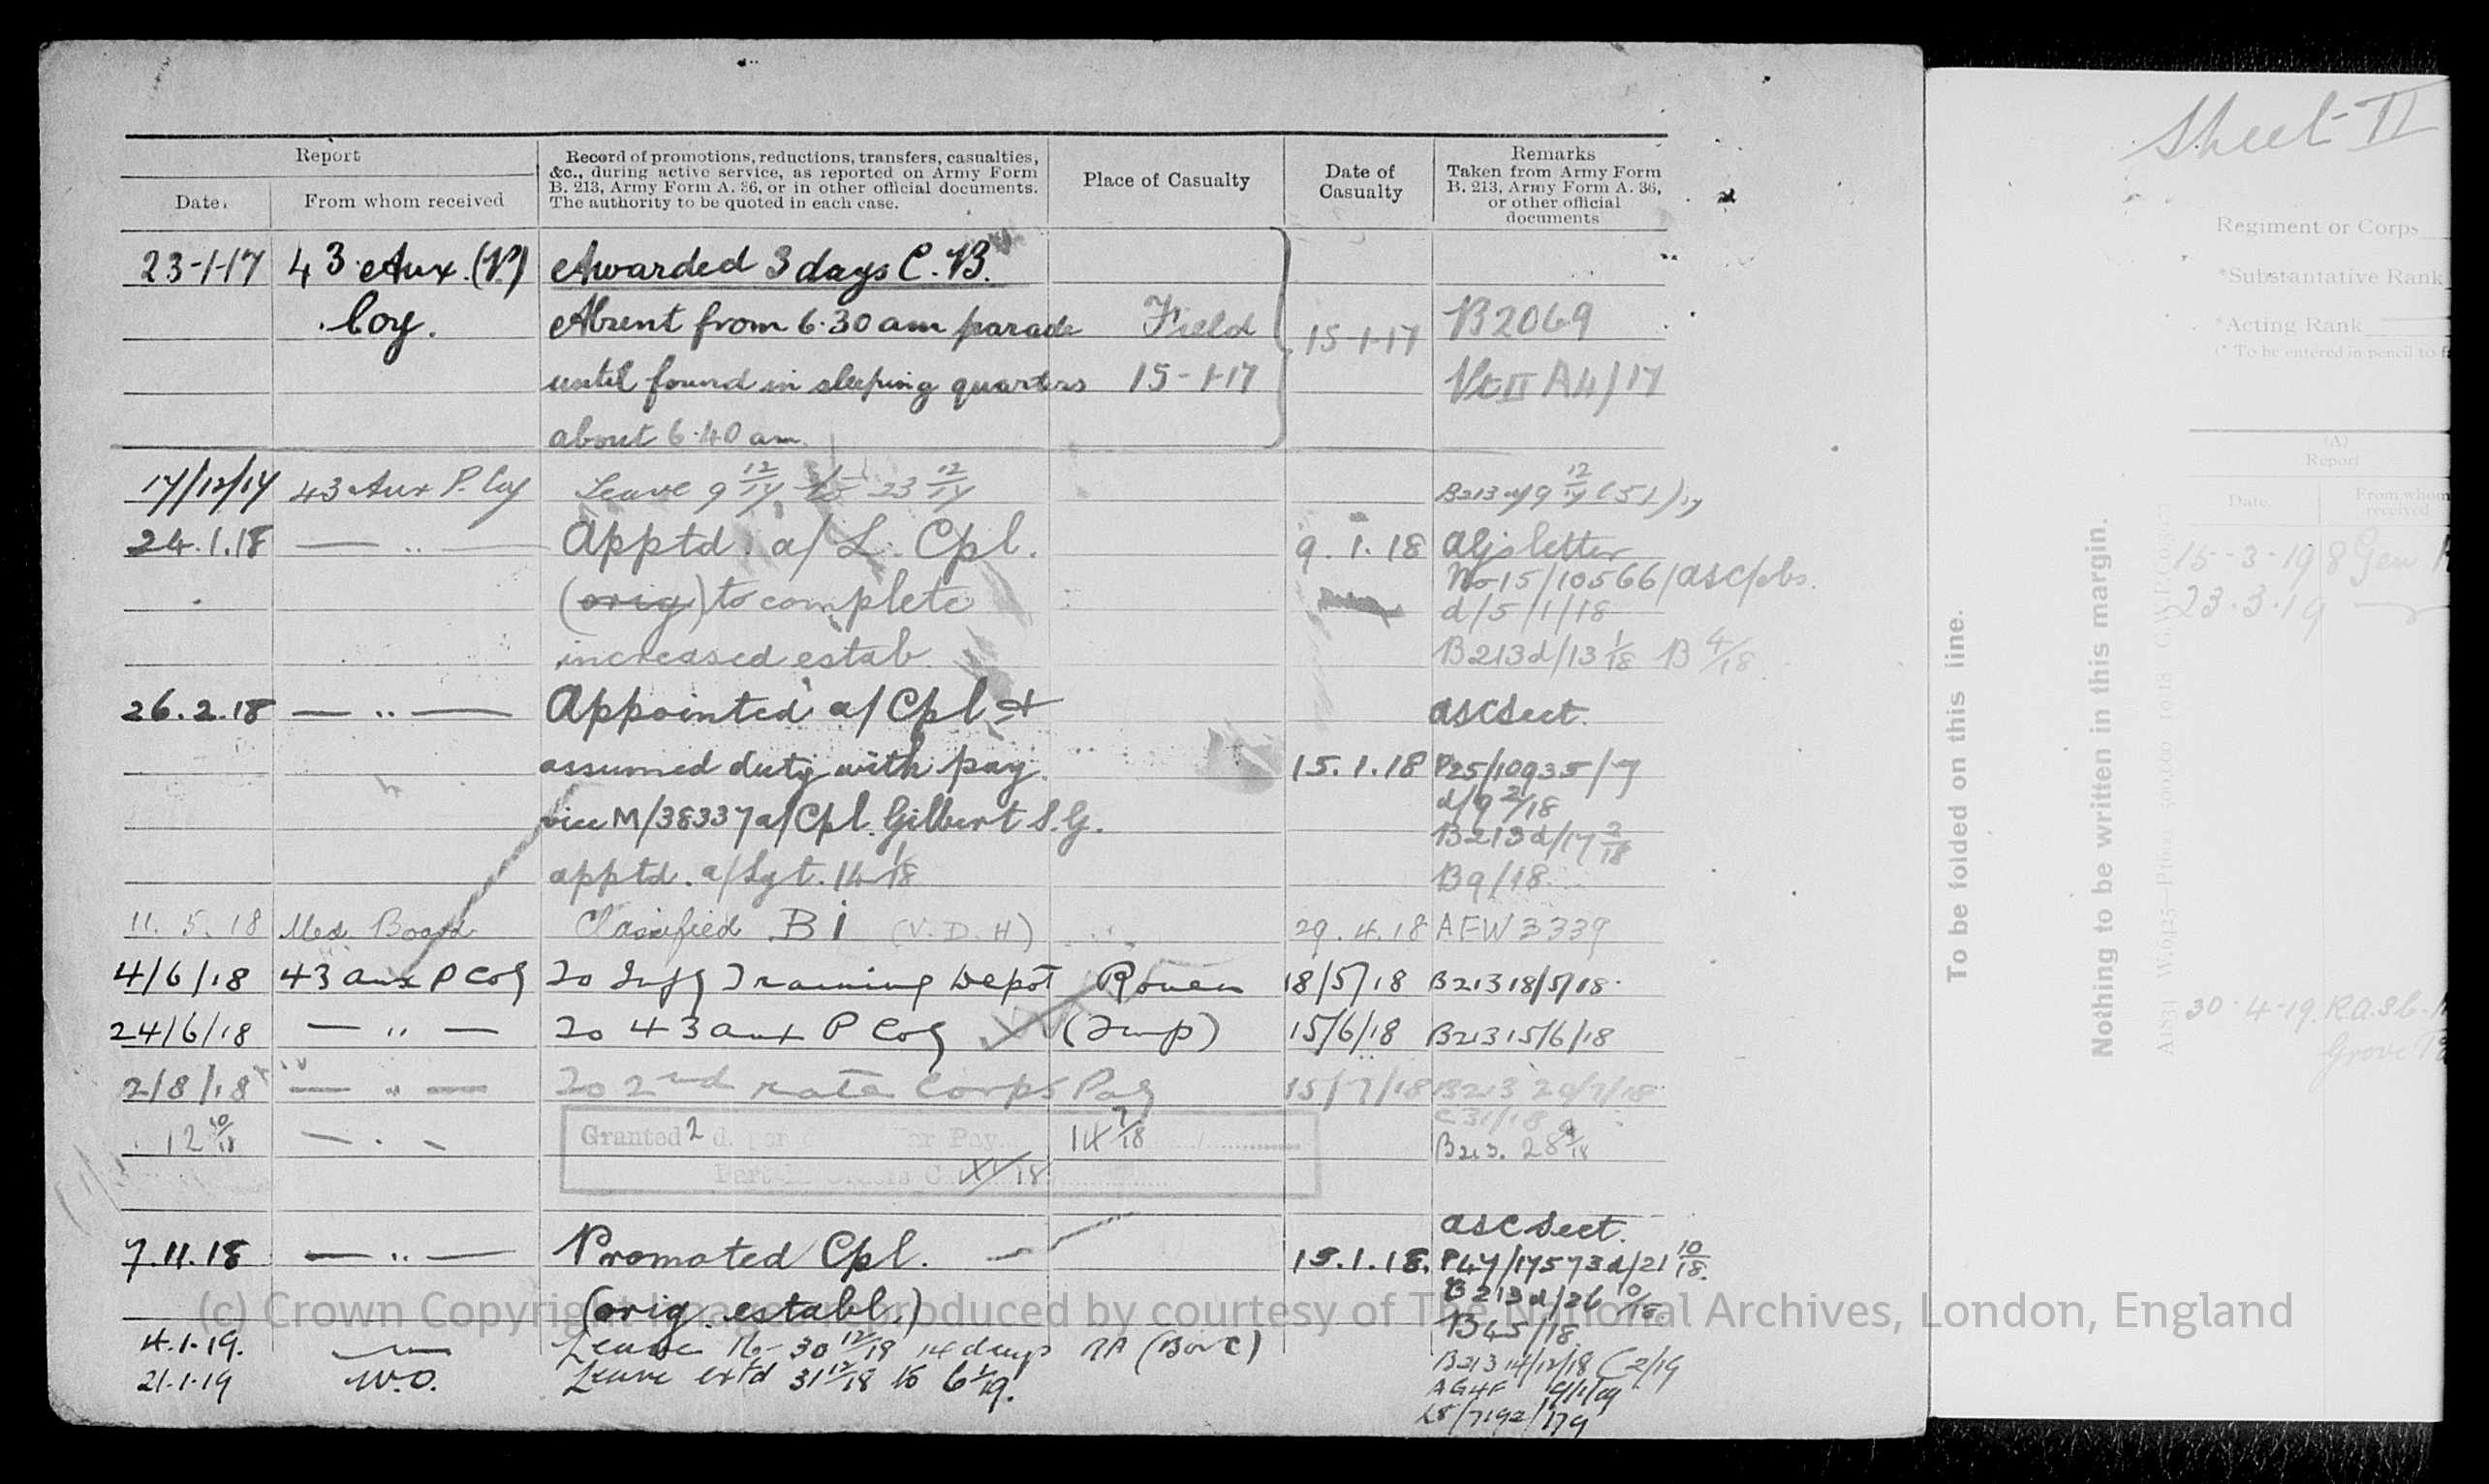 Report
Record of promotions, reductions, transfers, casualties, &c., during active service, as reported on Army Form B. 213, Army Form A. 36, or in other official documents. The authority to be quoted in each case.
Place of Casualty
Date of Casualty
Remarks
Taken from Army Form B. 213, Army Form A. 36, or other official documents
Date.
From whom received
23-1-17 43 Aux. (P) Awarded 3 days C.B.
Coy. Absent from 6.30 am parade Field 15-1-17 B2069
until found in sleeping quarters 15-1-17 Pt II A4/17
about 6.40 am.
17/12/17 43 Aux P. Coy Leave 9 12/17 23 12/17
24.1.18 — " — Apptd. a/L. Cpl. 9.1.18 letter
No 15/10566/ASC/
(orig) to complete d/5/1/18
increased estab. B213d/13 1/18 B 4/18
26.2.18 — " — Appointed a/Cpl & ASC Sect.
assumed duty with pay 15.1.18 P25/10935/7
d/9 2/18
vice M/38337 a/Cpl. Gilbert S.G. B213d/17 2/18
apptd. a/Sgt. 14 1/18 B9/18
11.5.18 Med. Board Classified B i (V.D.H) 29.4.18 AFW3339
4/6/18 43 Aux P Coy To Inf Training Depot Rouen 18/5/18 B213 18/5/18
24/6/18 — " — To 43 Aux P Coy (Temp) 15/6/18 B213 15/6/18
2/8/18 — " — To 2nd rate Corps Pay 15/7/18 B213 20/7/18
C31/18
12 10/18 — " — Granted 2 d. per Pay 14 7/18 B213. 28 9/18
Part Orders C /18
ASC Sect.
7.11.18 — " — Promoted Cpl. 15.1.18. P47/17573d/21 10/18.
(orig. establ.) B213d/26 10/18
B45/18.
4.1.19. Leave 16-30 12/18 14 days
B213 14/12/18 C2/19
21.1.19 W.O. Leave extd 31 12/18 to 6 1/19.
AG4F 9/1/19
(c) Crown Copyright Images reproduced by courtesy of The National Archives, London, England
To be folded on this line.
Nothing to be written in this margin.
Sheet II
Regiment or Corps
*Substantative Rank
*Acting Rank
(* To be entered in pencil to
(A)
Report
Date.
From whom received
15-3-19 8 Gen
23.3.19
30-4-19. R.A.S.C.
Grove